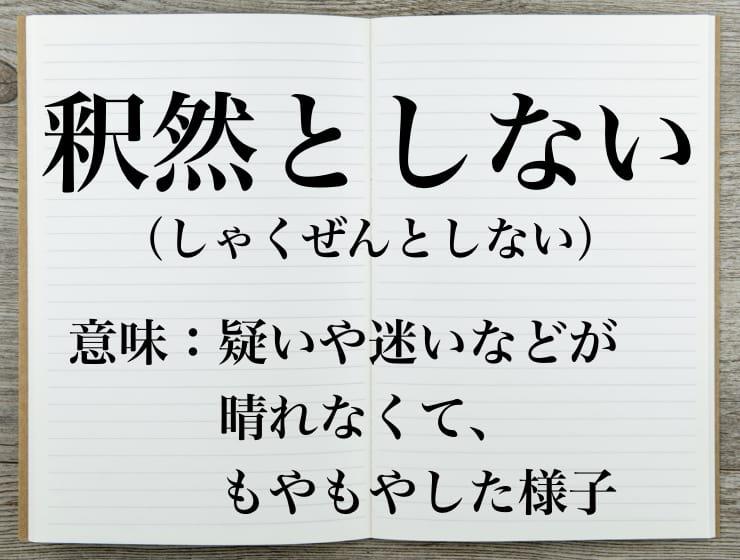 釈然としない
（しゃくぜんとしない）
意味：疑いや迷いなどが
晴れなくて、
もやもやした様子